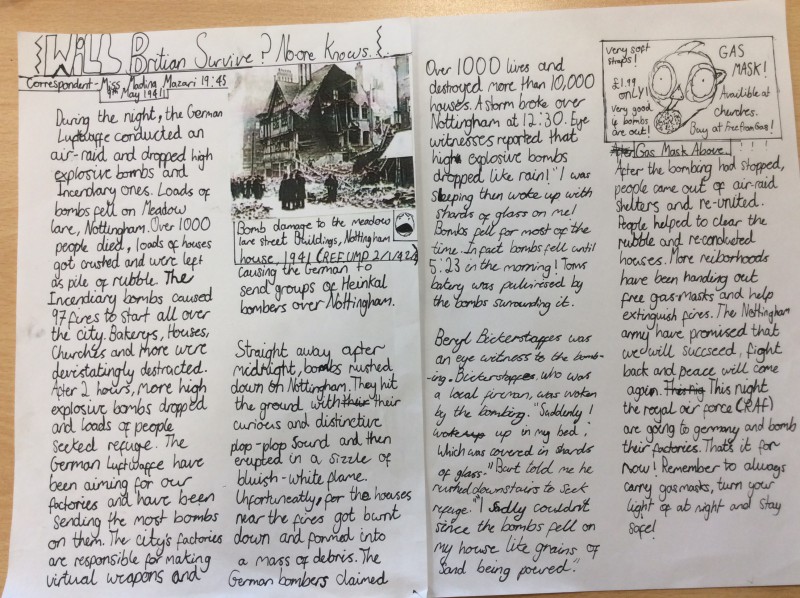 Will Britian Survive? No-one Knows.
Correspondent - Miss Madina Mazari 19:45
9th May 1941
During the night, the German
Luftwaffe conducted an
air-raid and dropped high
explosive bombs and
Incendiary ones. Loads of
bombs fell on Meadow
lane, Nottingham. Over 1000
people died, loads of houses
got crushed and were left
as pile of rubble. The
Incendiary bombs caused
97 fires to start all over
the city. Bakerys, Houses,
Churches and More were
devistatingly destracted.
After 2 hours, More high
explosive bombs dropped
and loads of people
seeked refuge. The
German Luftwaffe have
been aiming for our
factories and have been
sending the most bombs
on them. The city's factories
are responsible for making
virtual weapons and
Bomb damage to the meadow
lare street Buildings, Nottingham
house, 1941 (REF:UMP 2/1/42
causing the German to
send groups of Heinkal
bombers over Nottingham.
Straight away after
midnight, bombs rushed
down on Nottingham. They hit
the ground with their
curious and distinctive
plop-plop sound and then
erupted in a sizzle of
bluish-white flame.
Unfortuneatly, for the houses
near the fires got burnt
down and formed into
a mass of debris. The
German bombers claimed
Over 1000 lives and
destroyed more than 10,000
houses. A storm broke over
Nottingham at 12:30. Eye
witnesses reported that
high explosive bombs
dropped like rain! "I was
sleeping then woke up with
shards of glass on me!
Bombs fell for most of the
time. In fact bombs fell until
5:23 in the morning! Toms
bakery was pulvirised by
the bombs surrounding it.
Beryl Bickerstaffes was
an eye witness to the bomb-
-ing. Bickerstaffes, who was
a local fireman, was woken
by the bombing. "Suddenly I
woke up up in my bed,
which was covered in shards
of glass." Burt told me he
rushed downstairs to seek
refuge. "I sadly couldn't
since the bombs fell on
my house like grains of
sand being poured."
very soft
straps!
£1.99
ONLY!
very good
4 bombs
are out!
GAS
MASK!
Availible at
churches.
Buy at FreefromGas!
After Gas Mask Above
After the bombing had stopped,
people came out of air-raid
shelters and re-united.
People helped to clear the
rubble and re-conducted
houses. More neiborhoods
have been handing out
free gas-masks and help
extinguish fires. The Nottingham
army have promised that
we will succseed, fight
back and peace will come
again. This nig This night
the royal air force (RAF)
are going to germany and bomb
their factories. Thats it for
now! Remember to always
carry gas masks, turn your
light of at night and stay
safe!